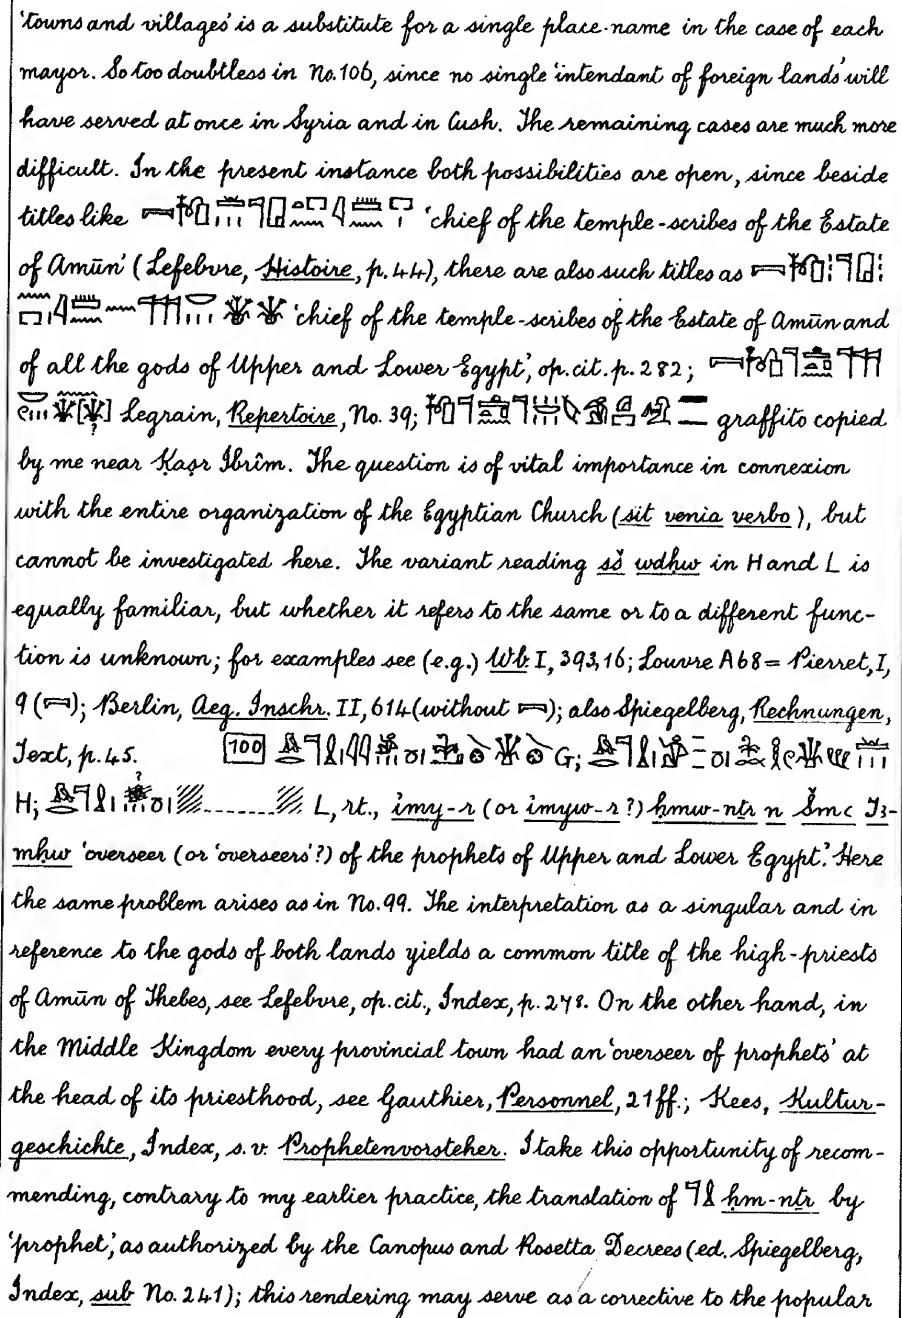 'towns and villages' is a substitute for a single place-name in the case of each
mayor. So too doubtless in No. 106, since no single 'intendant of foreign lands' will
have served at once in Syria and in Cush. The remaining cases are much more
difficult. In the present instance both possibilities are open, since beside
titles like 'chief of the temple-scribes of the Estate
of Amūn' (Lefebvre, Histoire, p. 44), there are also such titles as
'chief of the temple-scribes of the Estate of Amūn and
of all the gods of Upper and Lower Egypt', op. cit. p. 282;
Legrain, Repertoire, No. 39; graffito copied
by me near Ḳaṣr Ibrîm. The question is of vital importance in connexion
with the entire organization of the Egyptian Church (sit venia verbo), but
cannot be investigated here. The variant reading sš wdḥw in H and L is
equally familiar, but whether it refers to the same or to a different func-
tion is unknown; for examples see (e.g.) Wb. I, 393,16; Louvre A 68 = Pierret, I,
9 ( ); Berlin, Aeg. Inschr. II, 614 (without ); also Spiegelberg, Rechnungen,
Text, p. 45. 100 G;
H; L, rt., ı͗my-r (or ı͗myw-r?) ḥmw-nṯr n Šmꜥ Tꜣ-
mḥw 'overseer (or 'overseers'?) of the prophets of Upper and Lower Egypt'. Here
the same problem arises as in No. 99. The interpretation as a singular and in
reference to the gods of both lands yields a common title of the high-priests
of Amūn of Thebes, see Lefebvre, op. cit., Index, p. 278. On the other hand, in
the Middle Kingdom every provincial town had an 'overseer of prophets' at
the head of its priesthood, see Gauthier, Personnel, 21 ff.; Kees, Kultur-
geschichte, Index, s.v. Prophetenvorsteher. I take this opportunity of recom-
mending, contrary to my earlier practice, the translation of ḥm-nṯr by
'prophet', as authorized by the Canopus and Rosetta Decrees (ed. Spiegelberg,
Index, sub No. 241); this rendering may serve as a corrective to the popular